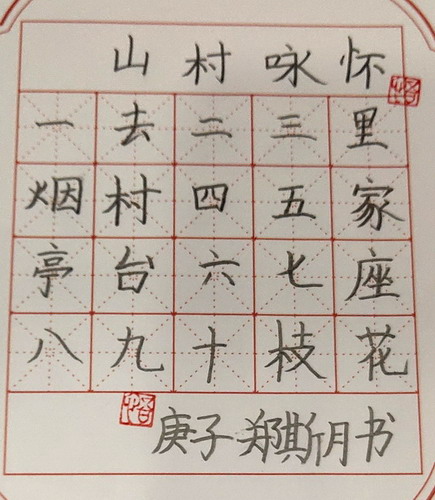 山村咏怀
一去二三里
烟村四五家
亭台六七座
八九十枝花
庚子郑斯月书